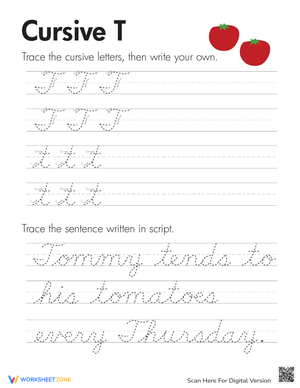 Cursive T
Trace the cursive letters, then write your own.
T T T
T T T
t t t
t t t
Trace the sentence written in script.
Tommy tends to
his tomatoes
every Thursday.
WORKSHEETZONE
Scan Here For Digital Version